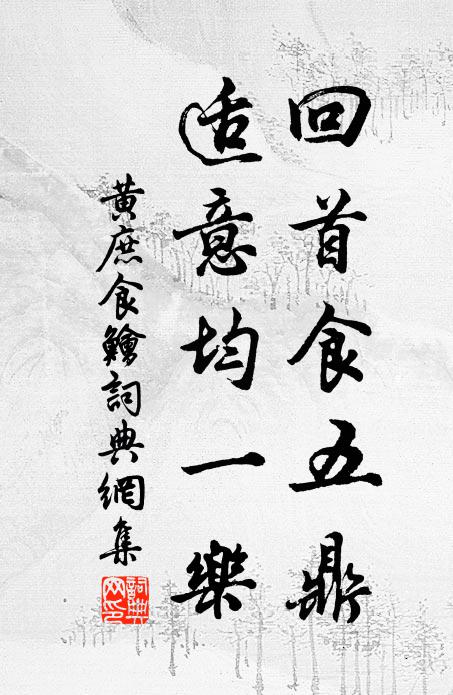 回首食五鼎
適意均一樂
黃庶食鱠詞典網集